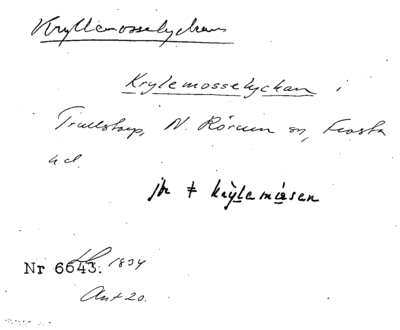 Kryllemosselyckan
Krylemosselyckan i
Trulstorp, N. Rörum sn, Frosta
hd.
jbr ‡ krỳlemåsen
Nr 6643. 1834
Ant 20.